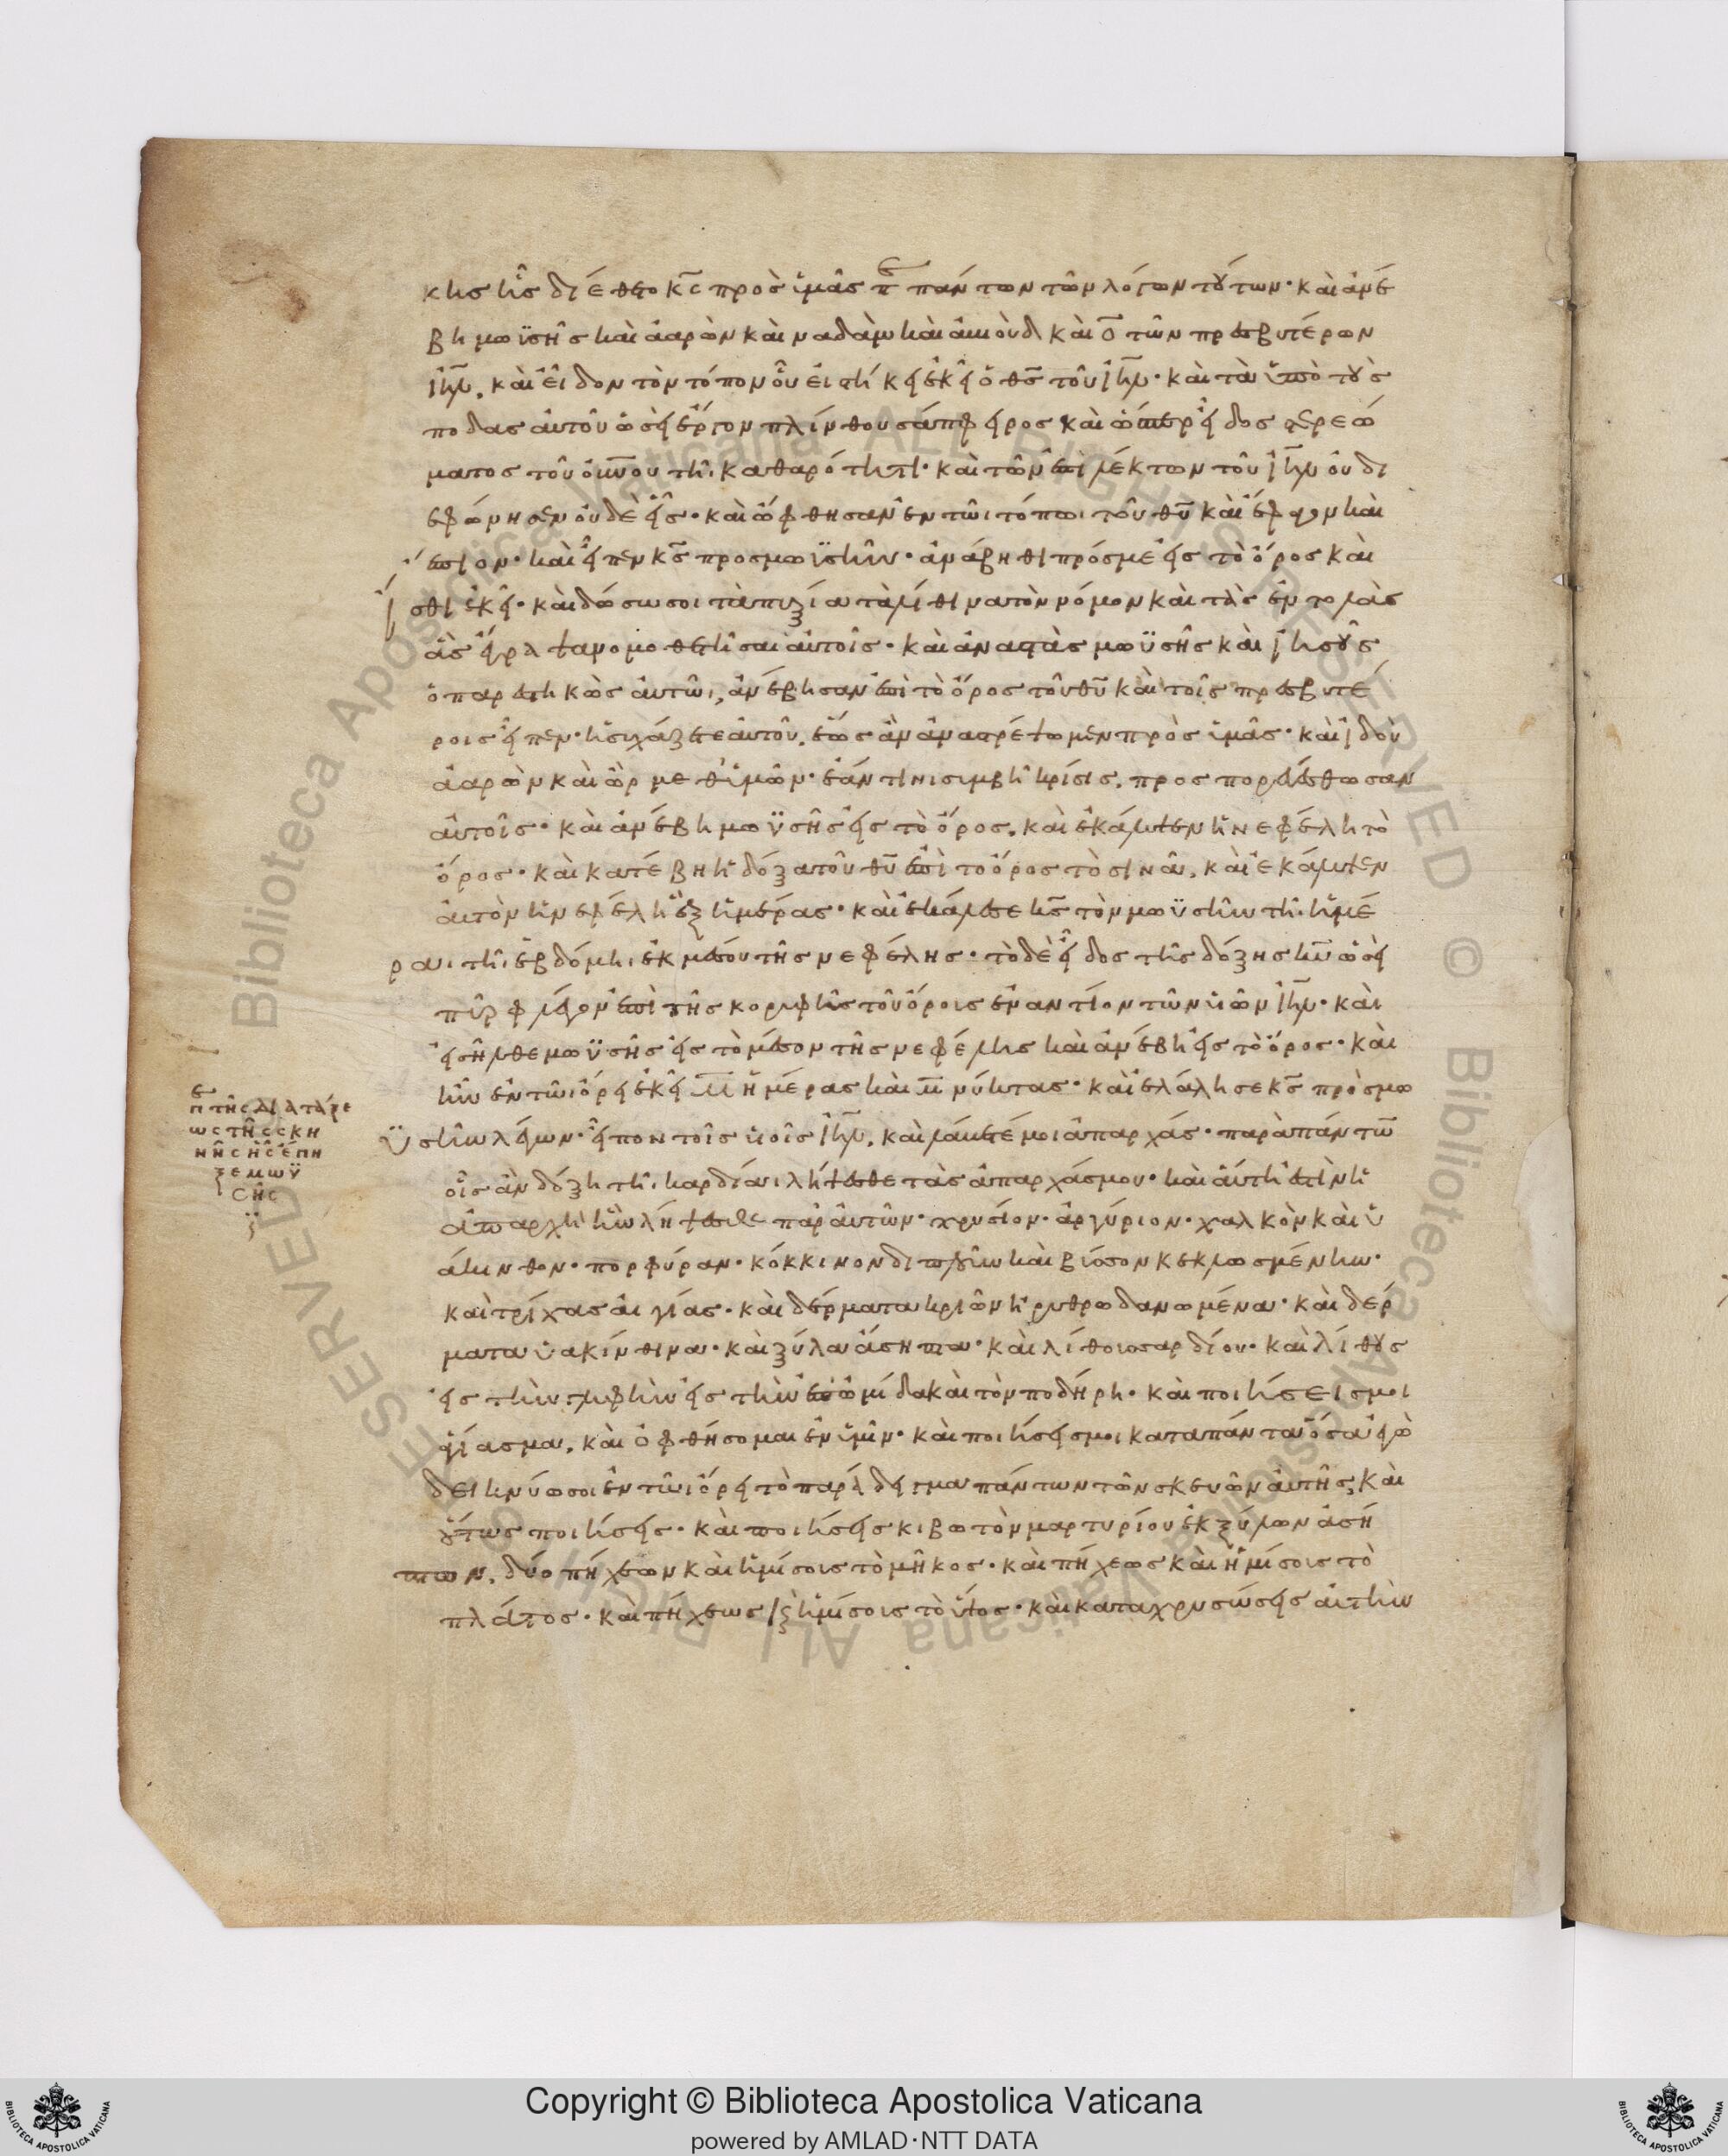 κης ἧς διέθετο κ̅ς̅ πρὸς ὑμᾶς π̅ε̅ πάντων τῶν λόγων τούτων· καὶ ἀνέ
βη μωϋσῆς καὶ ἀαρὼν καὶ ναδὰμ καὶ ἀμιοὺδ καὶ ο̅ τῶν πρεσβυτέρων
ἰη̅λ̅, καὶ εἶδον τὸν τόπον οὗ εἱστήκει ἐκεῖ ὁ θ̅ς̅ τοῦ ἰη̅λ̅· καὶ τὰ ὑπὸ τοὺς
ποδας αὐτοῦ ὡσεὶ ἔργον πλίνθου σάπφειρος καὶ ὥσπερ εἶδος στερεώ
ματος τοῦ οὐ̅ν̅ου τῆι καθαρότητι· καὶ τῶν ἐπιλέκτων τοῦ ἰη̅λ̅ οὐ δι
εφώνησεν οὐδὲ εἷς· καὶ ὤφθησαν ἐν τῶι τόπωι τοῦ θ̅υ̅ καὶ ἔφαγον καὶ
ἔπιον· καὶ εἶπεν κ̅ς̅ προς μωϋσῆν· ἀνάβηθι πρός με εἰς τὸ ὄρος καὶ
ἴσθι ἐκεῖ· καὶ δώσω σοι τὰ πυξία τὰ λίθινα τὸν νόμον καὶ τὰς ἐντολὰς
ἃς ἔγραψα νομοθετῆσαι αὐτοῖς· καὶ ἀναστὰς μωϋσῆς καὶ ἰησοῦς
ὁ παρεστηκὼς αὐτῶι, ἀνέβησαν ἐπὶ τὸ ὄρος τοῦ θ̅υ̅ καὶ τοῖς πρεσβυτέ
ροις εἶπεν· ἡσυχάζετε αὐτοῦ, ἕως ἂν ἀναστρέψωμεν πρὸς ὑμᾶς· καὶ ἰδοὺ
ἀαρὼν καὶ ὢρ μεθ' ὑμῶν· ἐάν τινι συμβῆ κρίσις, προσπορευέσθωσαν
αὐτοῖς· καὶ ἀνέβη μωϋσῆς εἰς τὸ ὄρος, καὶ ἐκάλυψεν ἡ νεφέλη τὸ
ὄρος· καὶ κατέβη ἡ δόξα τοῦ θ̅υ̅ ἐπὶ το ὄρος τὸ σινᾶ, καὶ ἐκάλυψεν
αὐτὸν ἡ νεφέλη ἓξ ἡμέρας· καὶ ἐκάλεσε κ̅ς̅ τὸν μωϋσῆν τῆι ἡμέ
ραι τῆι ἑβδόμηι ἐκ μέσου τῆς νεφέλης· τὸ δὲ εἶδος τῆς δόξης κ̅υ̅ ὡσεὶ
πῦρ φλέγον ἐπὶ τῆς κορυφῆς τοῦ ὄρους ἐναντίον τῶν υἱῶν ἰη̅λ̅· καὶ
εἰσῆλθε μωϋσῆς εἰς τὸ μέσον τῆς νεφέλης καὶ ἀνέβη εἰς τὸ ὄρος· καὶ
ἦν ἐν τῶι ὄρει ἐκεῖ μ̅ ἡμέρας καὶ μ̅ νύκτας· καὶ ἐλάλησε κ̅ς̅ πρὸς μω
ϋσῆν λέγων· εἶπον τοῖς υἱοῖς ἰη̅λ̅, καὶ λάβετέ μοι ἀπαρχάς· παρὰ πάντω̅
οἷς ἂν δόξη τῆι καρδίαι λήψεσθε τὰς ἀπαρχάς μου· καὶ αὕτη ἐστὶν ἡ
ἀπαρχὴ ἣν λήψεσθε παρ' αὐτῶν· χρυσίον· ἀργύριον· χαλκὸν καὶ ὑ
άκινθον· πορφύραν· κόκκινον διπλοῦν καὶ βύσσον κεκλωσμένην·
καὶ τρίχας αἰγίας· καὶ δέρματα κριῶν ἠρυθροδανωμένα· καὶ δέρ
ματα ὑακίνθινα· καὶ ξύλα ἄσηπτα· καὶ λίθους σαρδίου· καὶ λίθους
εἰς τὴν γλυφὴν εἰς τὴν ἐπωμίδα καὶ τὸν ποδήρη· καὶ ποιήσεις μοι
ἁγίασμα, καὶ ὀφθήσομαι ἐν ὑμῖν· καὶ ποιήσεις μοι κατα πάντα ὅσα ἐγὼ
δεικνύω σοι ἐν τῶι ὄρει τὸ παράδειγμα πάντων τῶν σκευῶν αὐτῆς, καὶ
οὕτως ποιήσεις· καὶ ποιήσεις κιβωτὸν μαρτυρίου ἐκ ξύλων ἀσή
πτων, δύο πήχεων καὶ ἡμίσους τὸ μῆκος· καὶ πήχεως καὶ ἡμίσους τὸ
πλάτος· καὶ πήχεως κ̀ ἡμίσους τὸ ὕψος· καὶ καταχρυσώσεις αὐτὴν
πε τῆς διατάξε
ως τῆς σκη
νῆς ἧς ἔπη
ξε μωϋ
σῆς
Copyright © Biblioteca Apostolica Vaticana
powered by AMLAD·NTT DATA